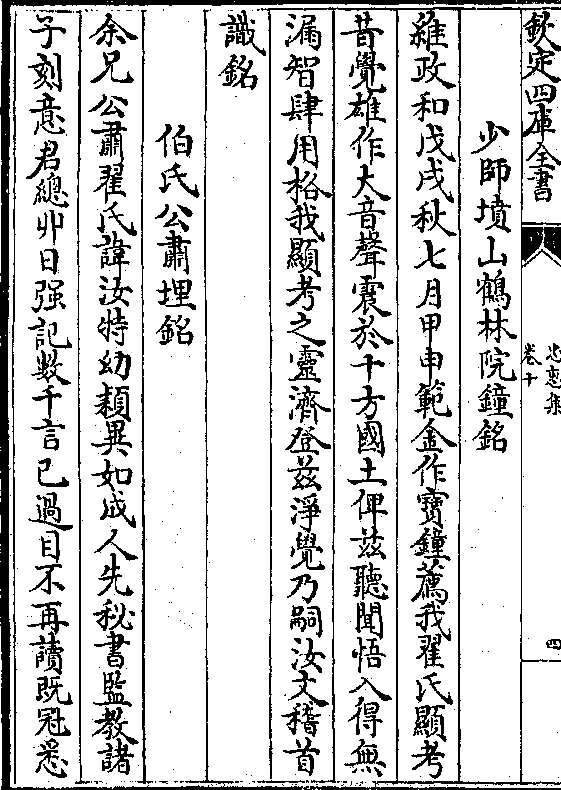 欽定四庫全書
忠惠集
卷十
四
少師墳山鶴林院鐘銘
維政和戊戌秋七月甲申範金作寳鐘薦我翟氏顯考
昔覺雄作大音聲震於十方國土俾兹聽聞悟入得無
漏智肆用格我顯考之靈濟登兹淨覺乃嗣汝文稽首
識銘
伯氏公肅埋銘
余兄公肅翟氏諱汝特幼頴異如成人先秘書監教諸
子刻意君總丱日强記數千言已過目不再讀既冠悉